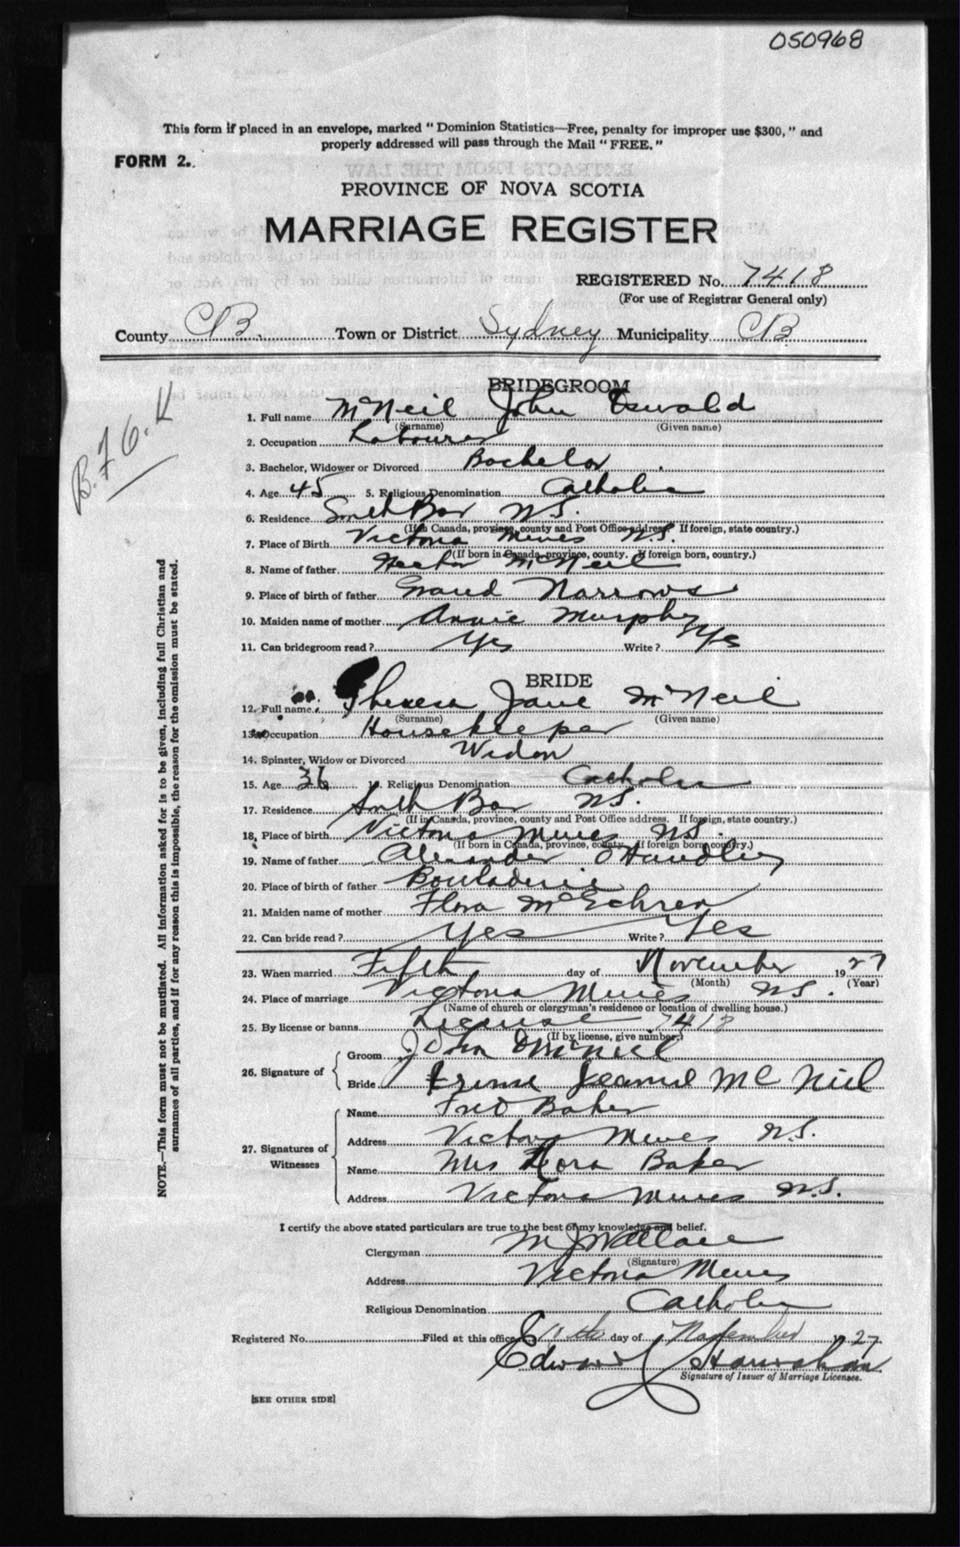 050968
This form if placed in an envelope, marked "Dominion Statistics—Free, penalty for improper use $300," and
properly addressed will pass through the Mail "FREE."
FORM 2.
PROVINCE OF NOVA SCOTIA
MARRIAGE REGISTER
REGISTERED No. 7418
(For use of Registrar General only)
County C.B. Town or District Sydney Municipality CB
B.76.K
BRIDEGROOM
1. Full name McNeil John Oswald
(Surname) (Given name)
2. Occupation Labourer
3. Bachelor, Widower or Divorced Bachelor
4. Age 45 5. Religious Denomination Catholic
6. Residence South Bar N.S.
(If in Canada, province, county and Post Office address. If foreign, state country.)
7. Place of Birth Victoria Mines N.S.
(If born in Canada, province, county. If foreign born, country.)
8. Name of father Hector McNeil
9. Place of birth of father Grand Narrows
10. Maiden name of mother Annie Murphy
11. Can bridegroom read? Yes Write? Yes
BRIDE
12. Full name Theresa Jane McNeil
(Surname) (Given name)
13. Occupation Housekeeper
14. Spinster, Widow or Divorced Widow
15. Age 36 Religious Denomination Catholic
17. Residence South Bar N.S.
(If in Canada, province, county and Post Office address. If foreign, state country.)
18. Place of birth Victoria Mines N.S.
(If born in Canada, province, county. If foreign born, country.)
19. Name of father Alexander O'Handley
20. Place of birth of father Boulardrie
21. Maiden name of mother Flora McEchren
22. Can bride read? Yes Write? Yes
23. When married Fifth day of November 1927
(Month) (Year)
24. Place of marriage Victoria Mines N.S.
(Name of church or clergyman's residence or location of dwelling house.)
25. By license or banns License 7418
(If by license, give number)
26. Signature of
Groom John O McNeil
Bride Jeannie McNeil
27. Signatures of Witnesses
Name Fred Baker
Address Victoria Mines N.S.
Name Mrs Flora Baker
Address Victoria Mines N.S.
I certify the above stated particulars are true to the best of my knowledge and belief.
Clergyman M J Wallace
(Signature)
Address Victoria Mines
Religious Denomination Catholic
Registered No. Filed at this office 11th day of November 27
Edward J Hanrahan
Signature of Issuer of Marriage Licenses.
[SEE OTHER SIDE]
NOTE.—This form must not be mutilated. All information asked for is to be given, including full Christian and
surnames of all parties, and if for any reason this is impossible, the reason for the omission must be stated.